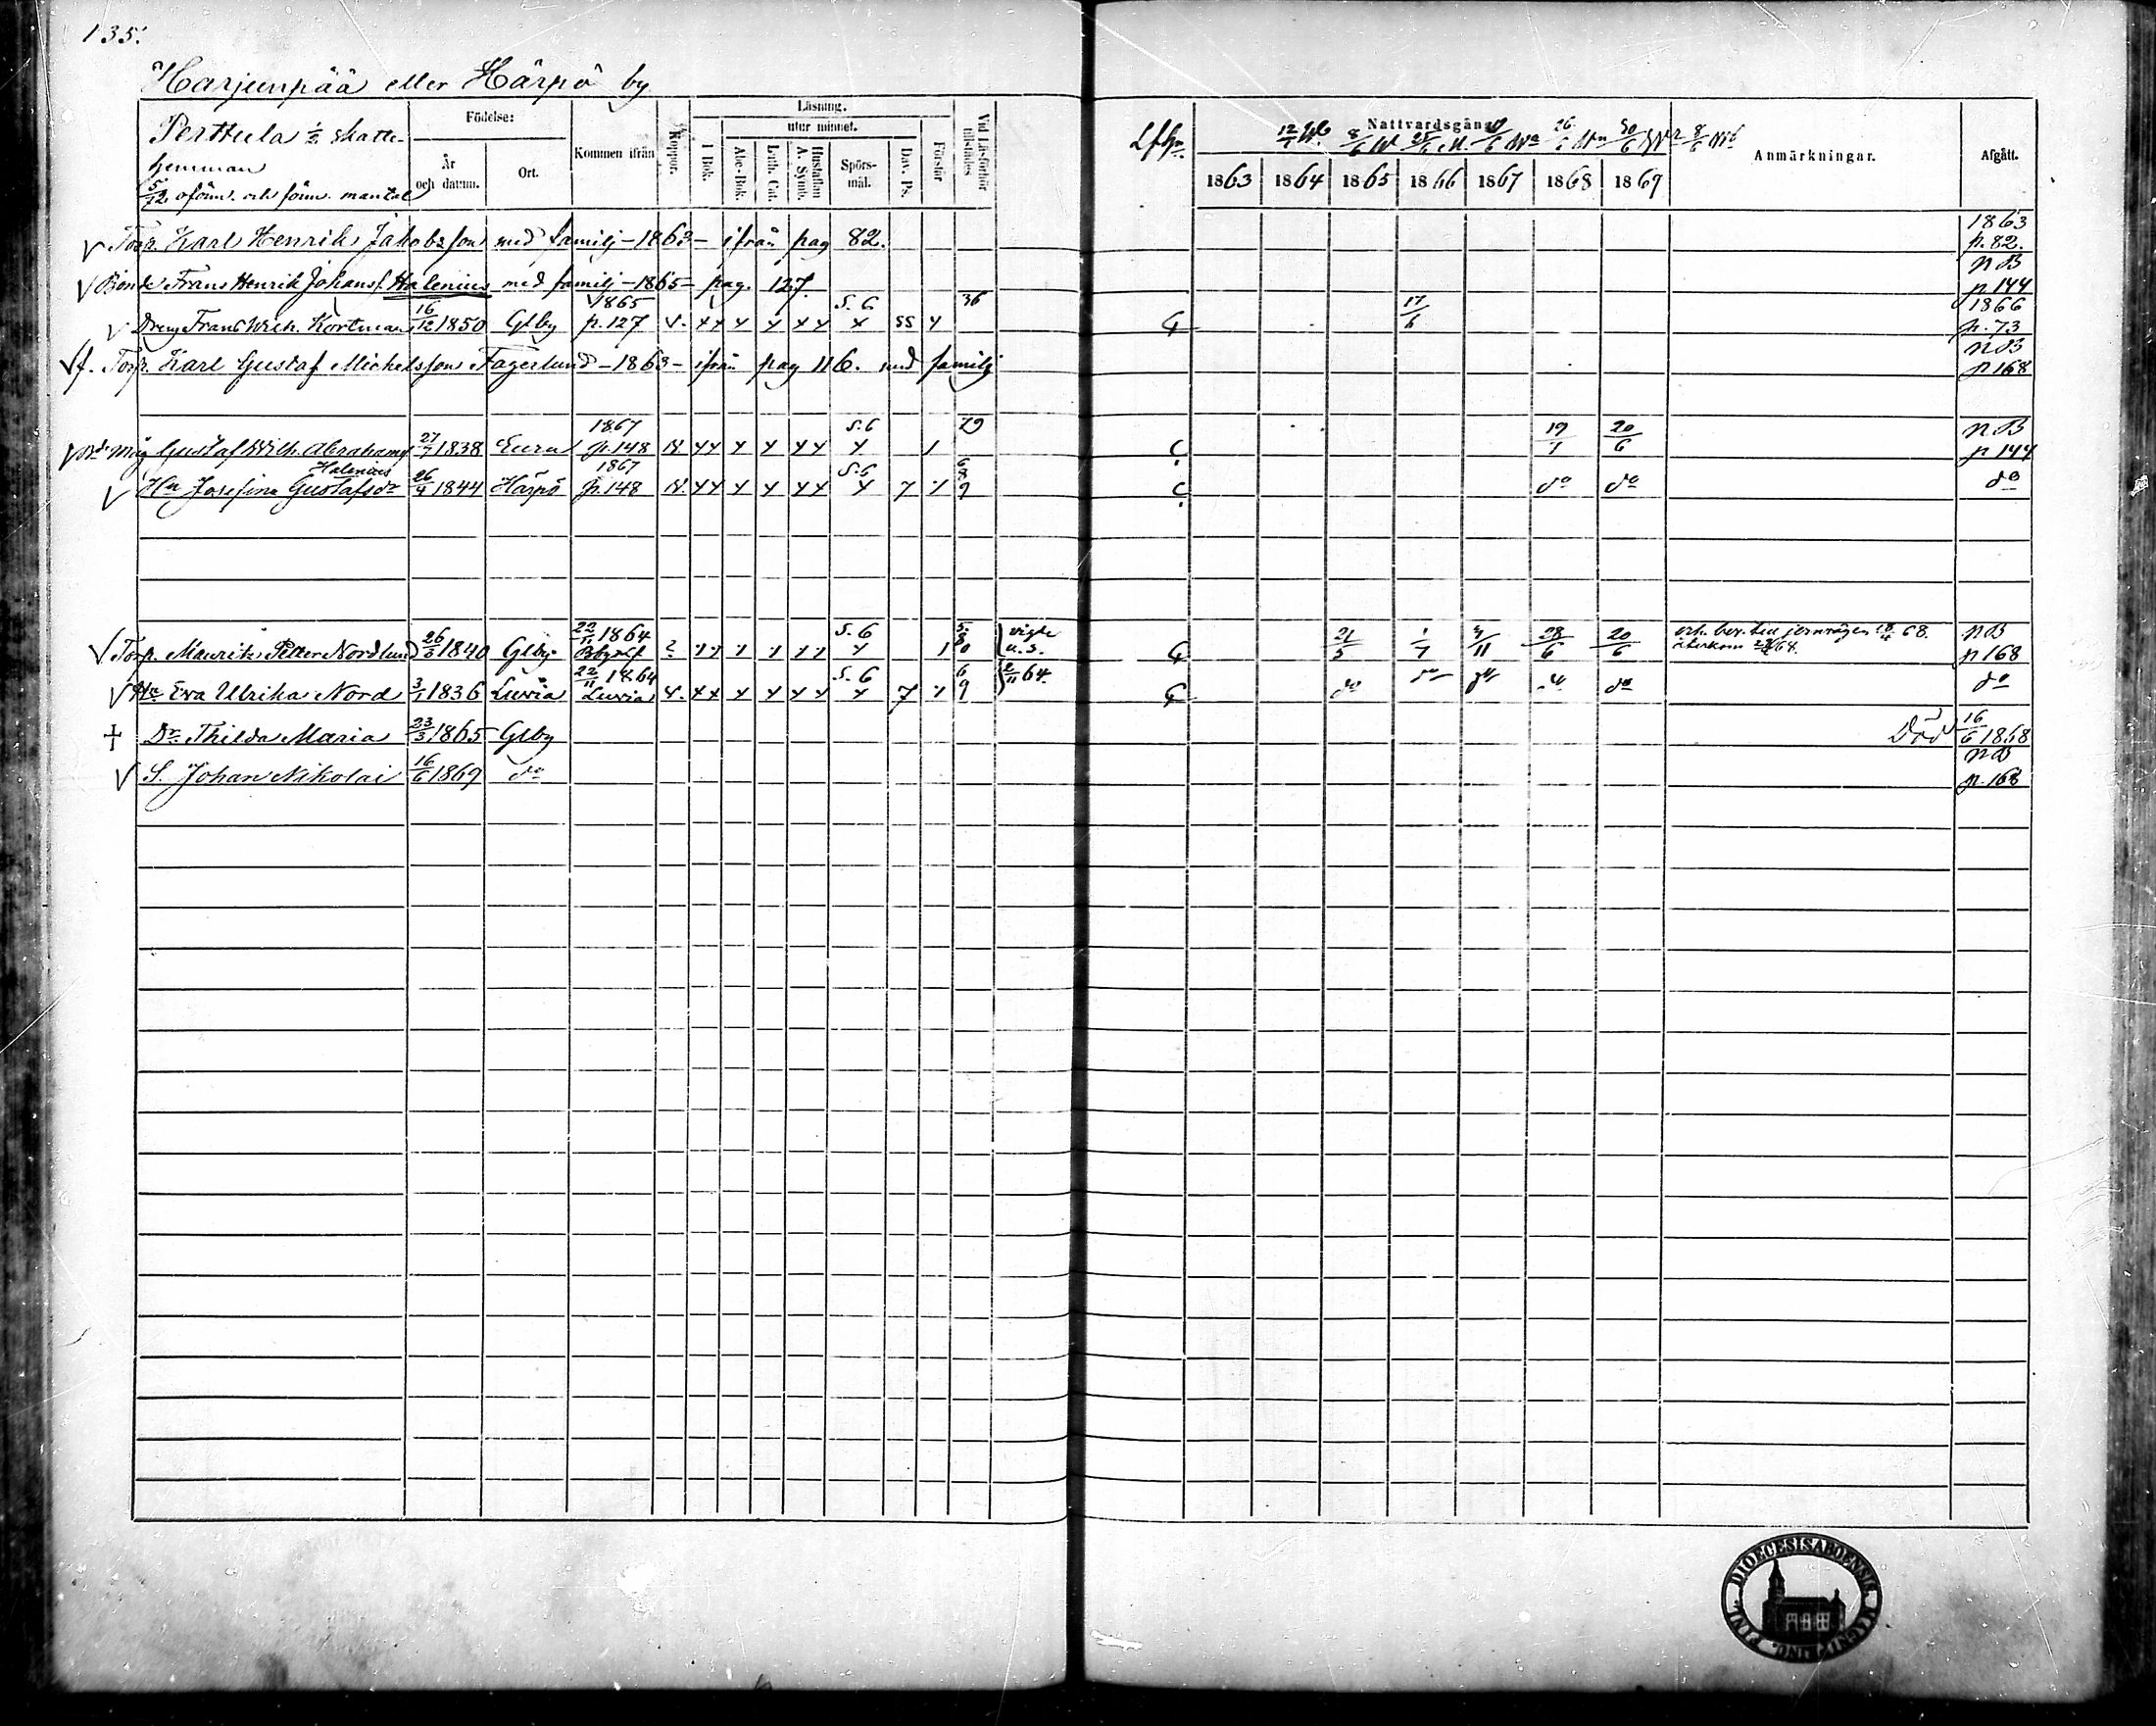 135.
Harjunpää eller Härpö by
Perttula ½ skatte-
hemman
5/12 oförm. och förm. mantal
Födelse:
År och datum.
Ort.
Kommen ifrån
Koppor.
Läsning.
I Bok.
utur minnet.
Abc-Bok.
Luth. Cat.
Hustaflan A. Symb.
Spörs-mål.
Dav. Ps.
Förstår
Vid Läsförhör tillstädes
Nattvardsgång
12/7 8/6 26/6 30/6 8/6
1863 1864 1865 1866 1867 1868 1869
Anmärkningar.
Afgått.
Torp. Karl Henrik Jakobsson med familj - 1863 - ifrån pag 82. 1863 p. 82.
Bonde Frans Henrik Johans. Halenius med familj - 1865 - pag. 127. NB p 144
Dreng Frans Wilh. Kortman 16/12 1850 Glby 1865 p. 127 S. 6 ss 36 17/6 1866 p. 73
f. Torp. Karl Gustaf Michelsson Fagerlund - 1863 - ifrån pag 116. med familj NB p 168
Måg Gustaf Wilh. Abrahams 27/7 1838 Eura 1867 p. 148 S. 6 1 79 19/7 20/6 NB p 144
Halenius
Hu Josefina Gustafsdr 26/4 1844 Härpö 1867 p. 148 S. 6 7 do do do
Torp. Maurits Petter Nordlund 26/6 1840 Glby 22/11 1864 S. 6 1 vigde 21/5 1/7 28/6 20/6 erh. bev. till jernvägen 68. NB p 168
återkom 68.
Hu Eva Ulrika Nord 3/1 1836 Luvia 22/11 1864 Luvia S. 6 7 6 9 2/11 64. do do do do do do
† Dr Thilda Maria 23/3 1865 Glby Död 16/6 1868
S. Johan Nikolai 16/6 1869 do NB p. 168
DIOECESIS ABOENSIS